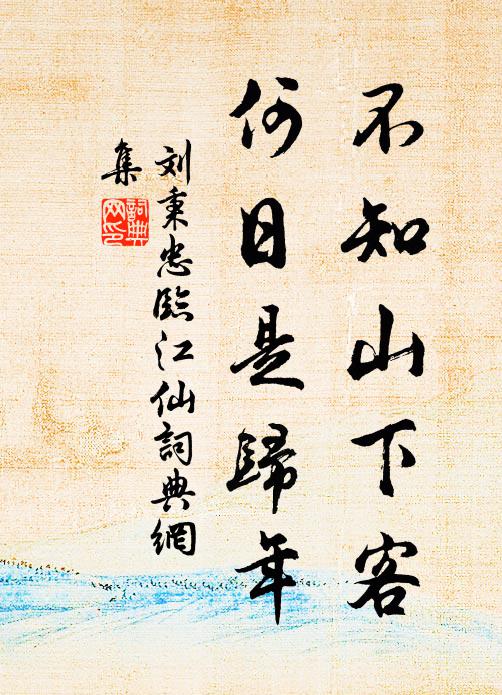 不知山下客
何日是歸年
刘秉忠臨江仙詞典網
集
詞典網印